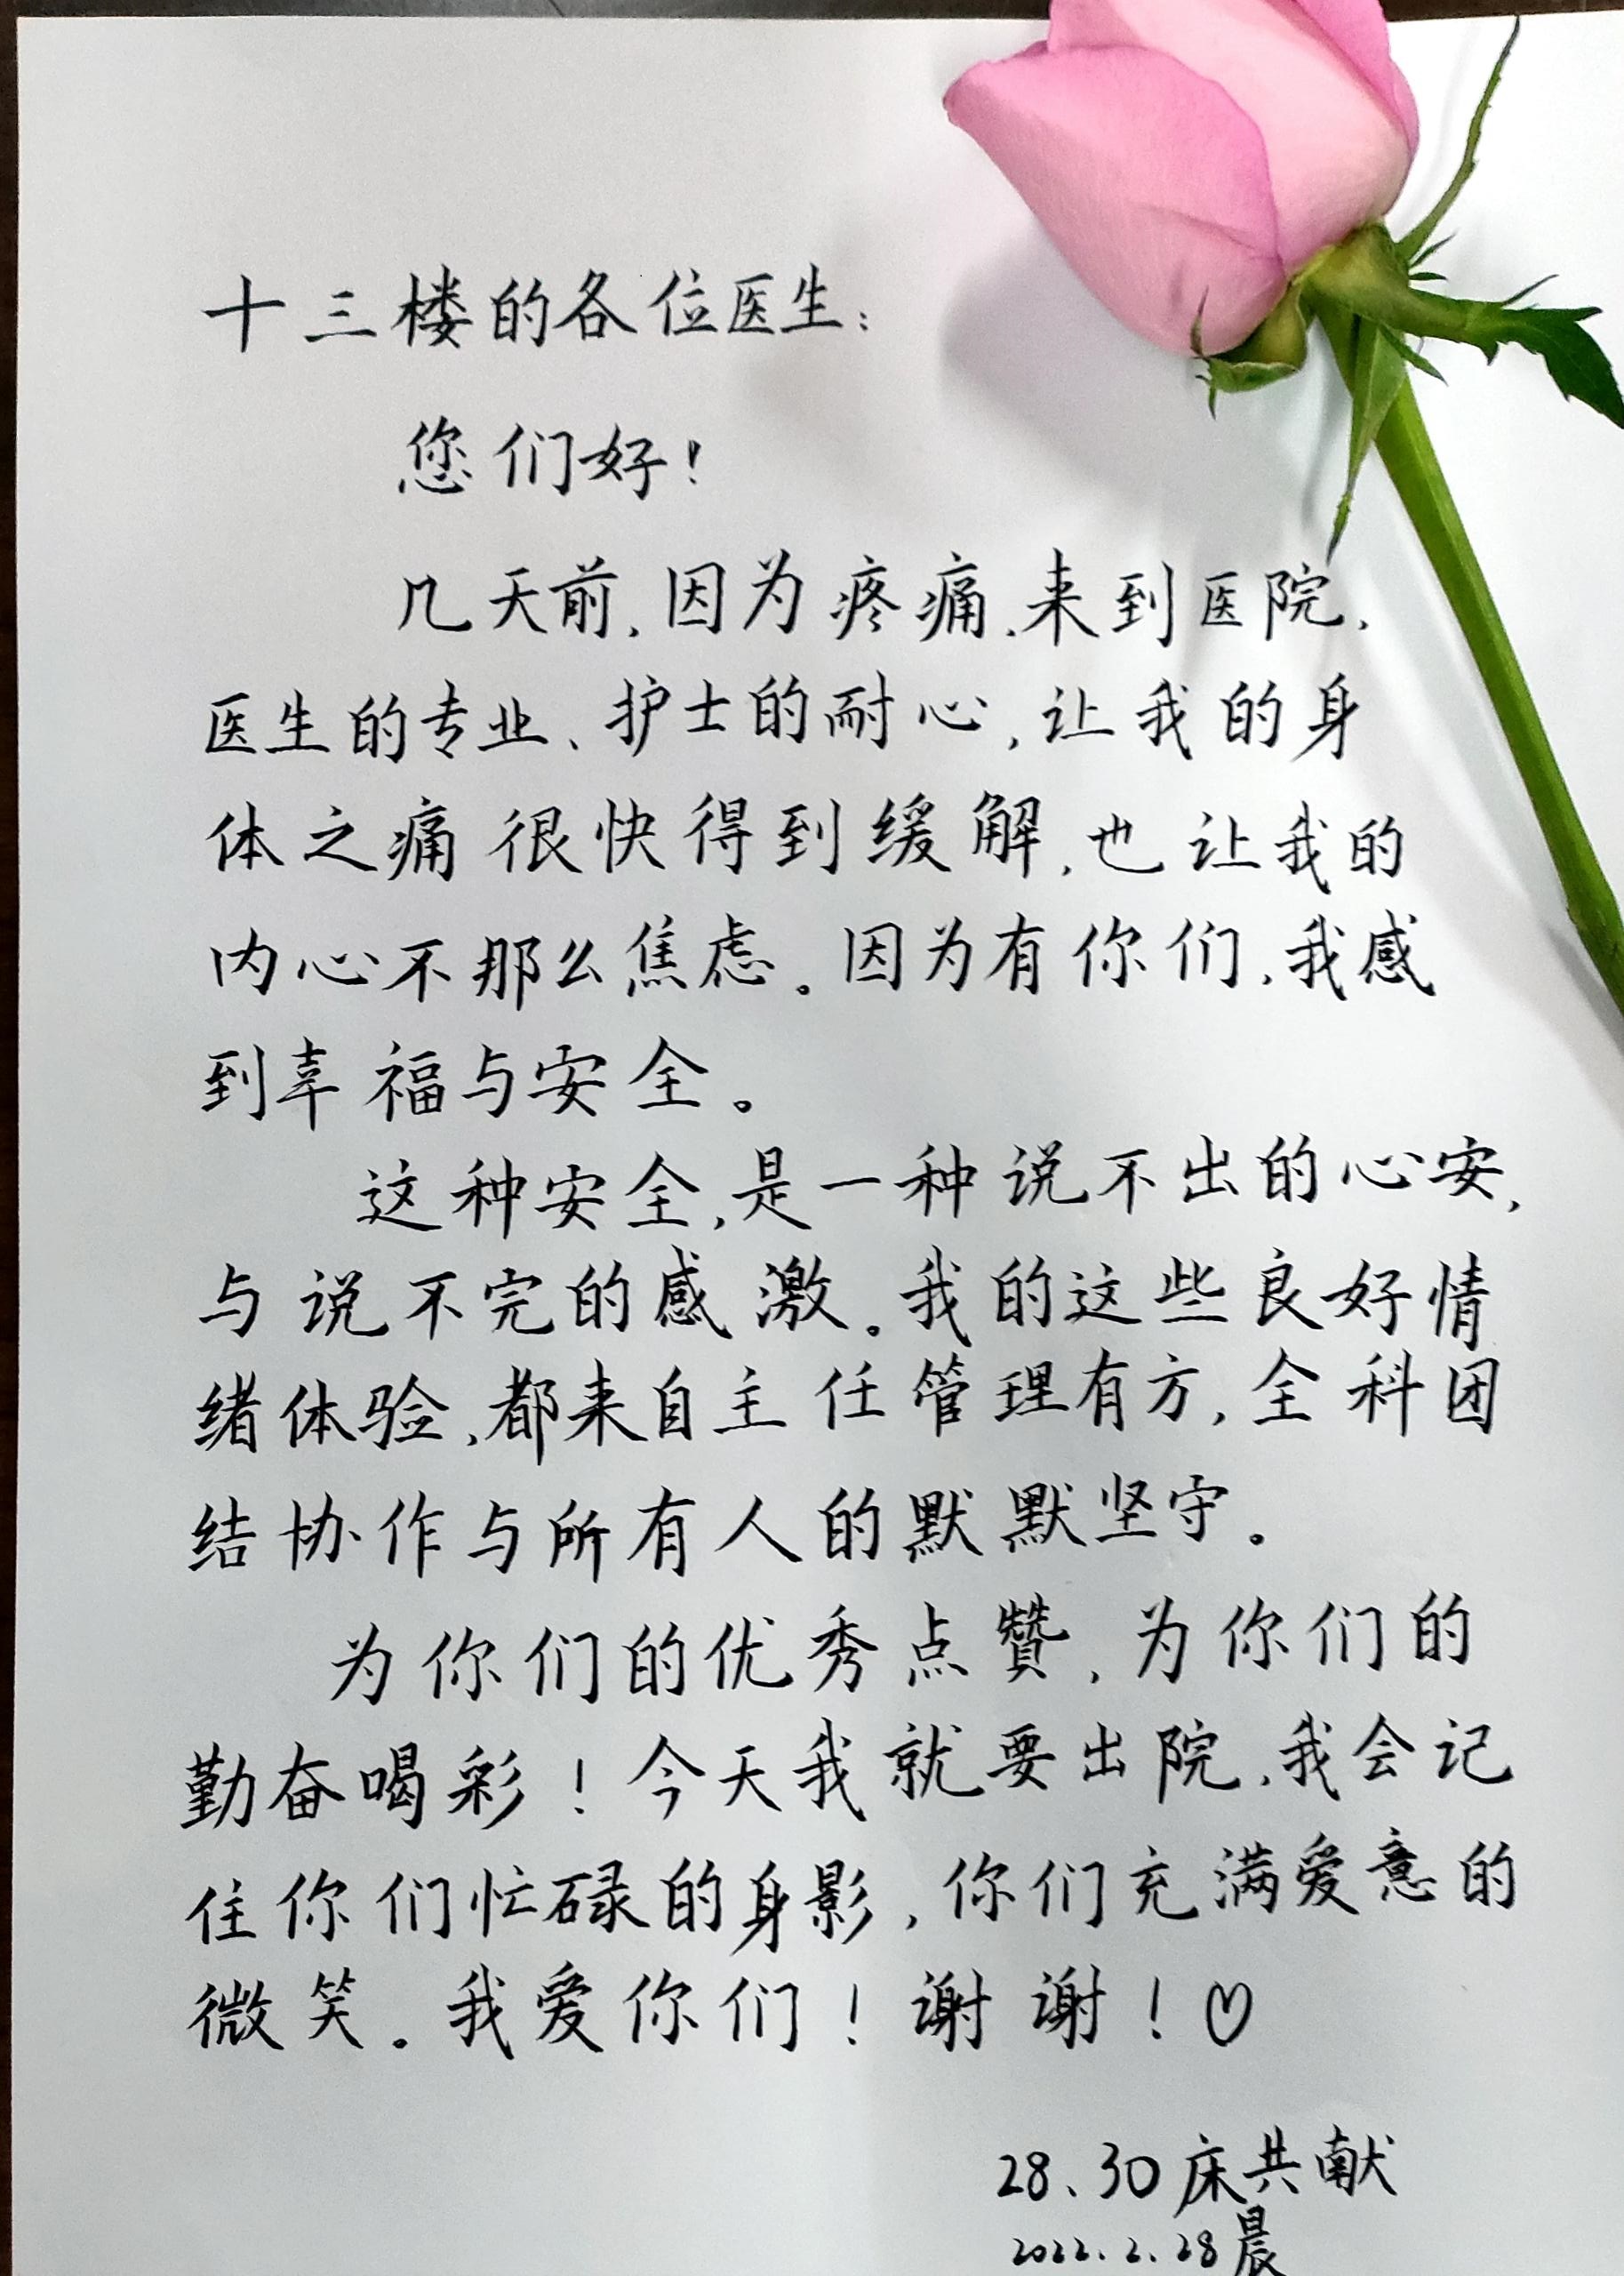 十三楼的各位医生：
您们好！
几天前，因为疼痛，来到医院，
医生的专业、护士的耐心，让我的身
体之痛很快得到缓解，也让我的
内心不那么焦虑。因为有你们，我感
到幸福与安全。
这种安全，是一种说不出的心安，
与说不完的感激。我的这些良好情
绪体验，都来自主任管理有方，全科团
结协作与所有人的默默坚守。
为你们的优秀点贊，为你们的
勤奋喝彩！今天我就要出院，我会记
住你们忙碌的身影，你们充满爱意的
微笑。我爱你们！谢谢！♡
28、30床共献
2022.2.28晨